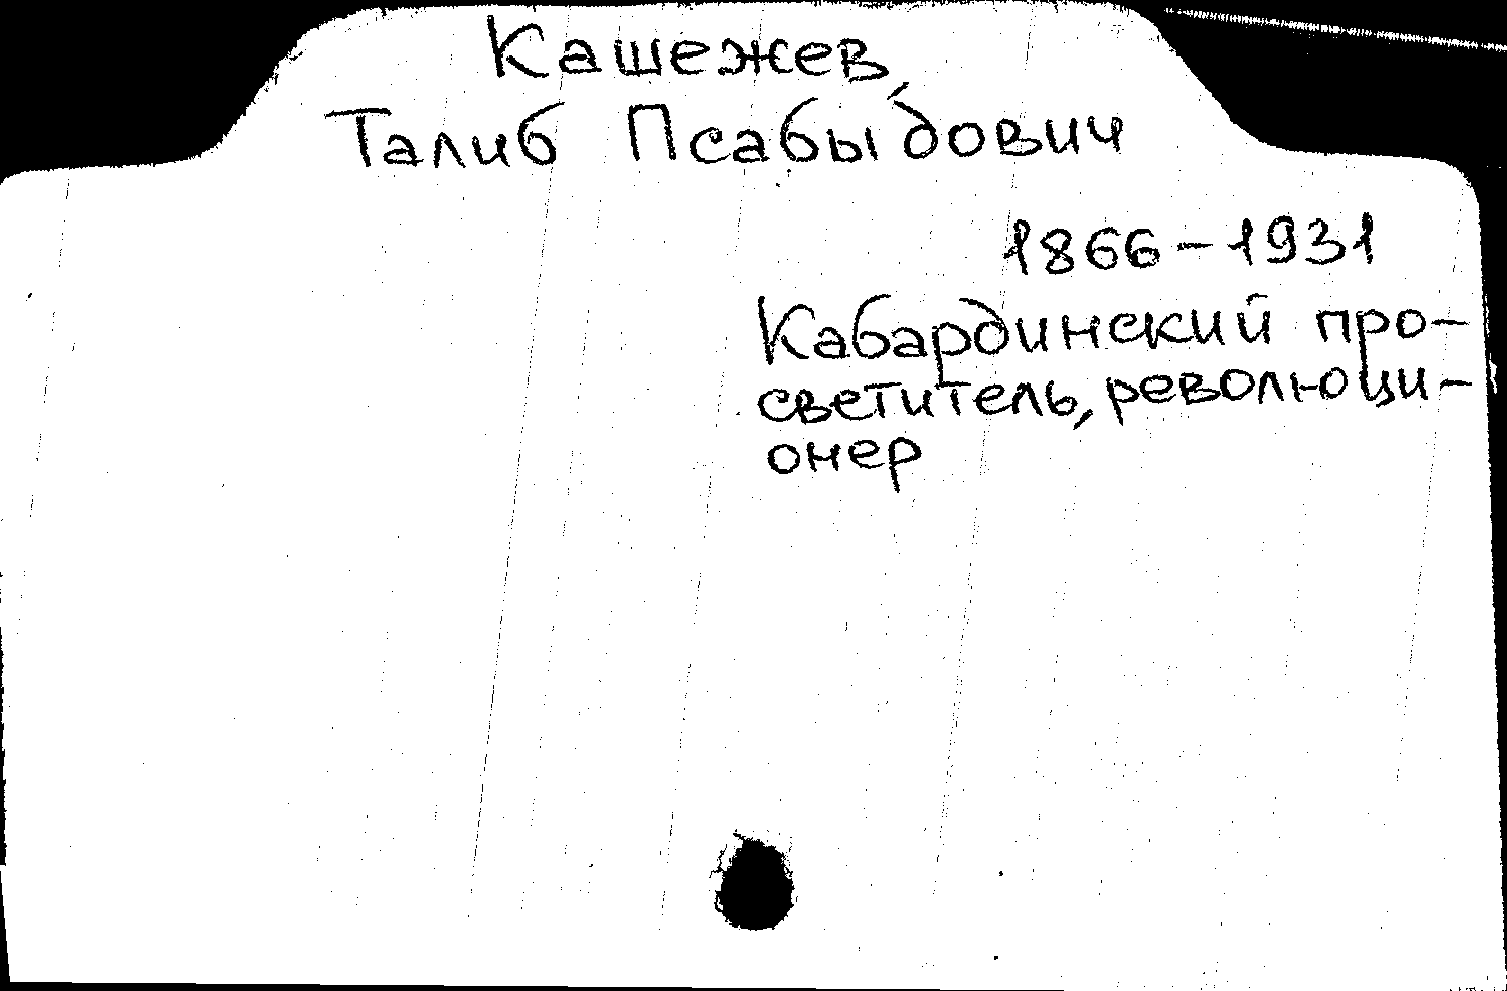 Кашежев,
Талиб Псабыдович
1866-1931
Кабардинский про-
светитель, революци-
онер